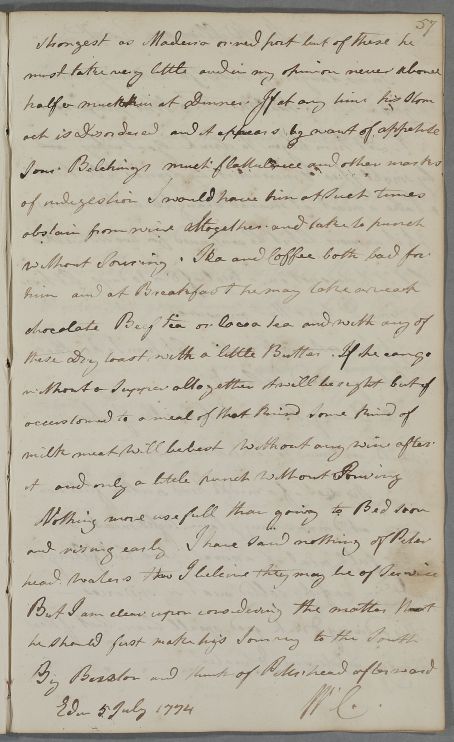 57
strongest as Madeira or red port but of these he
must take very little and in my opinion never above
half a mutchkin at Dinner. If at any time his Stom
ach is disordered and it appears by want of appetite
Sour Belchings much flatulence and other marks
of indigestion I would have him at Such times
abstain from wine altogether and take to punch
without Souring. Tea and Coffee both bad for
him and at Breakfast he may take a weak
chocolate Beef tea or Cocoa tea and with any of
these dry toast with a little Butter. If he can go
without a Supper altogether it will be right but if
accustomed to a meal of that kind Some kind of
milk meat will be best without any wine after
it and only a little punch without Souring
Nothing more usefull than going to Bed soon
and rising early. I have said nothing of Peter
head waters tho I believe they may be of Service
But I am clear upon considering the matter that
he should first make his Journey to the South
By Buxton and think of Peterhead afterward
Edin 5 July 1774 W C.